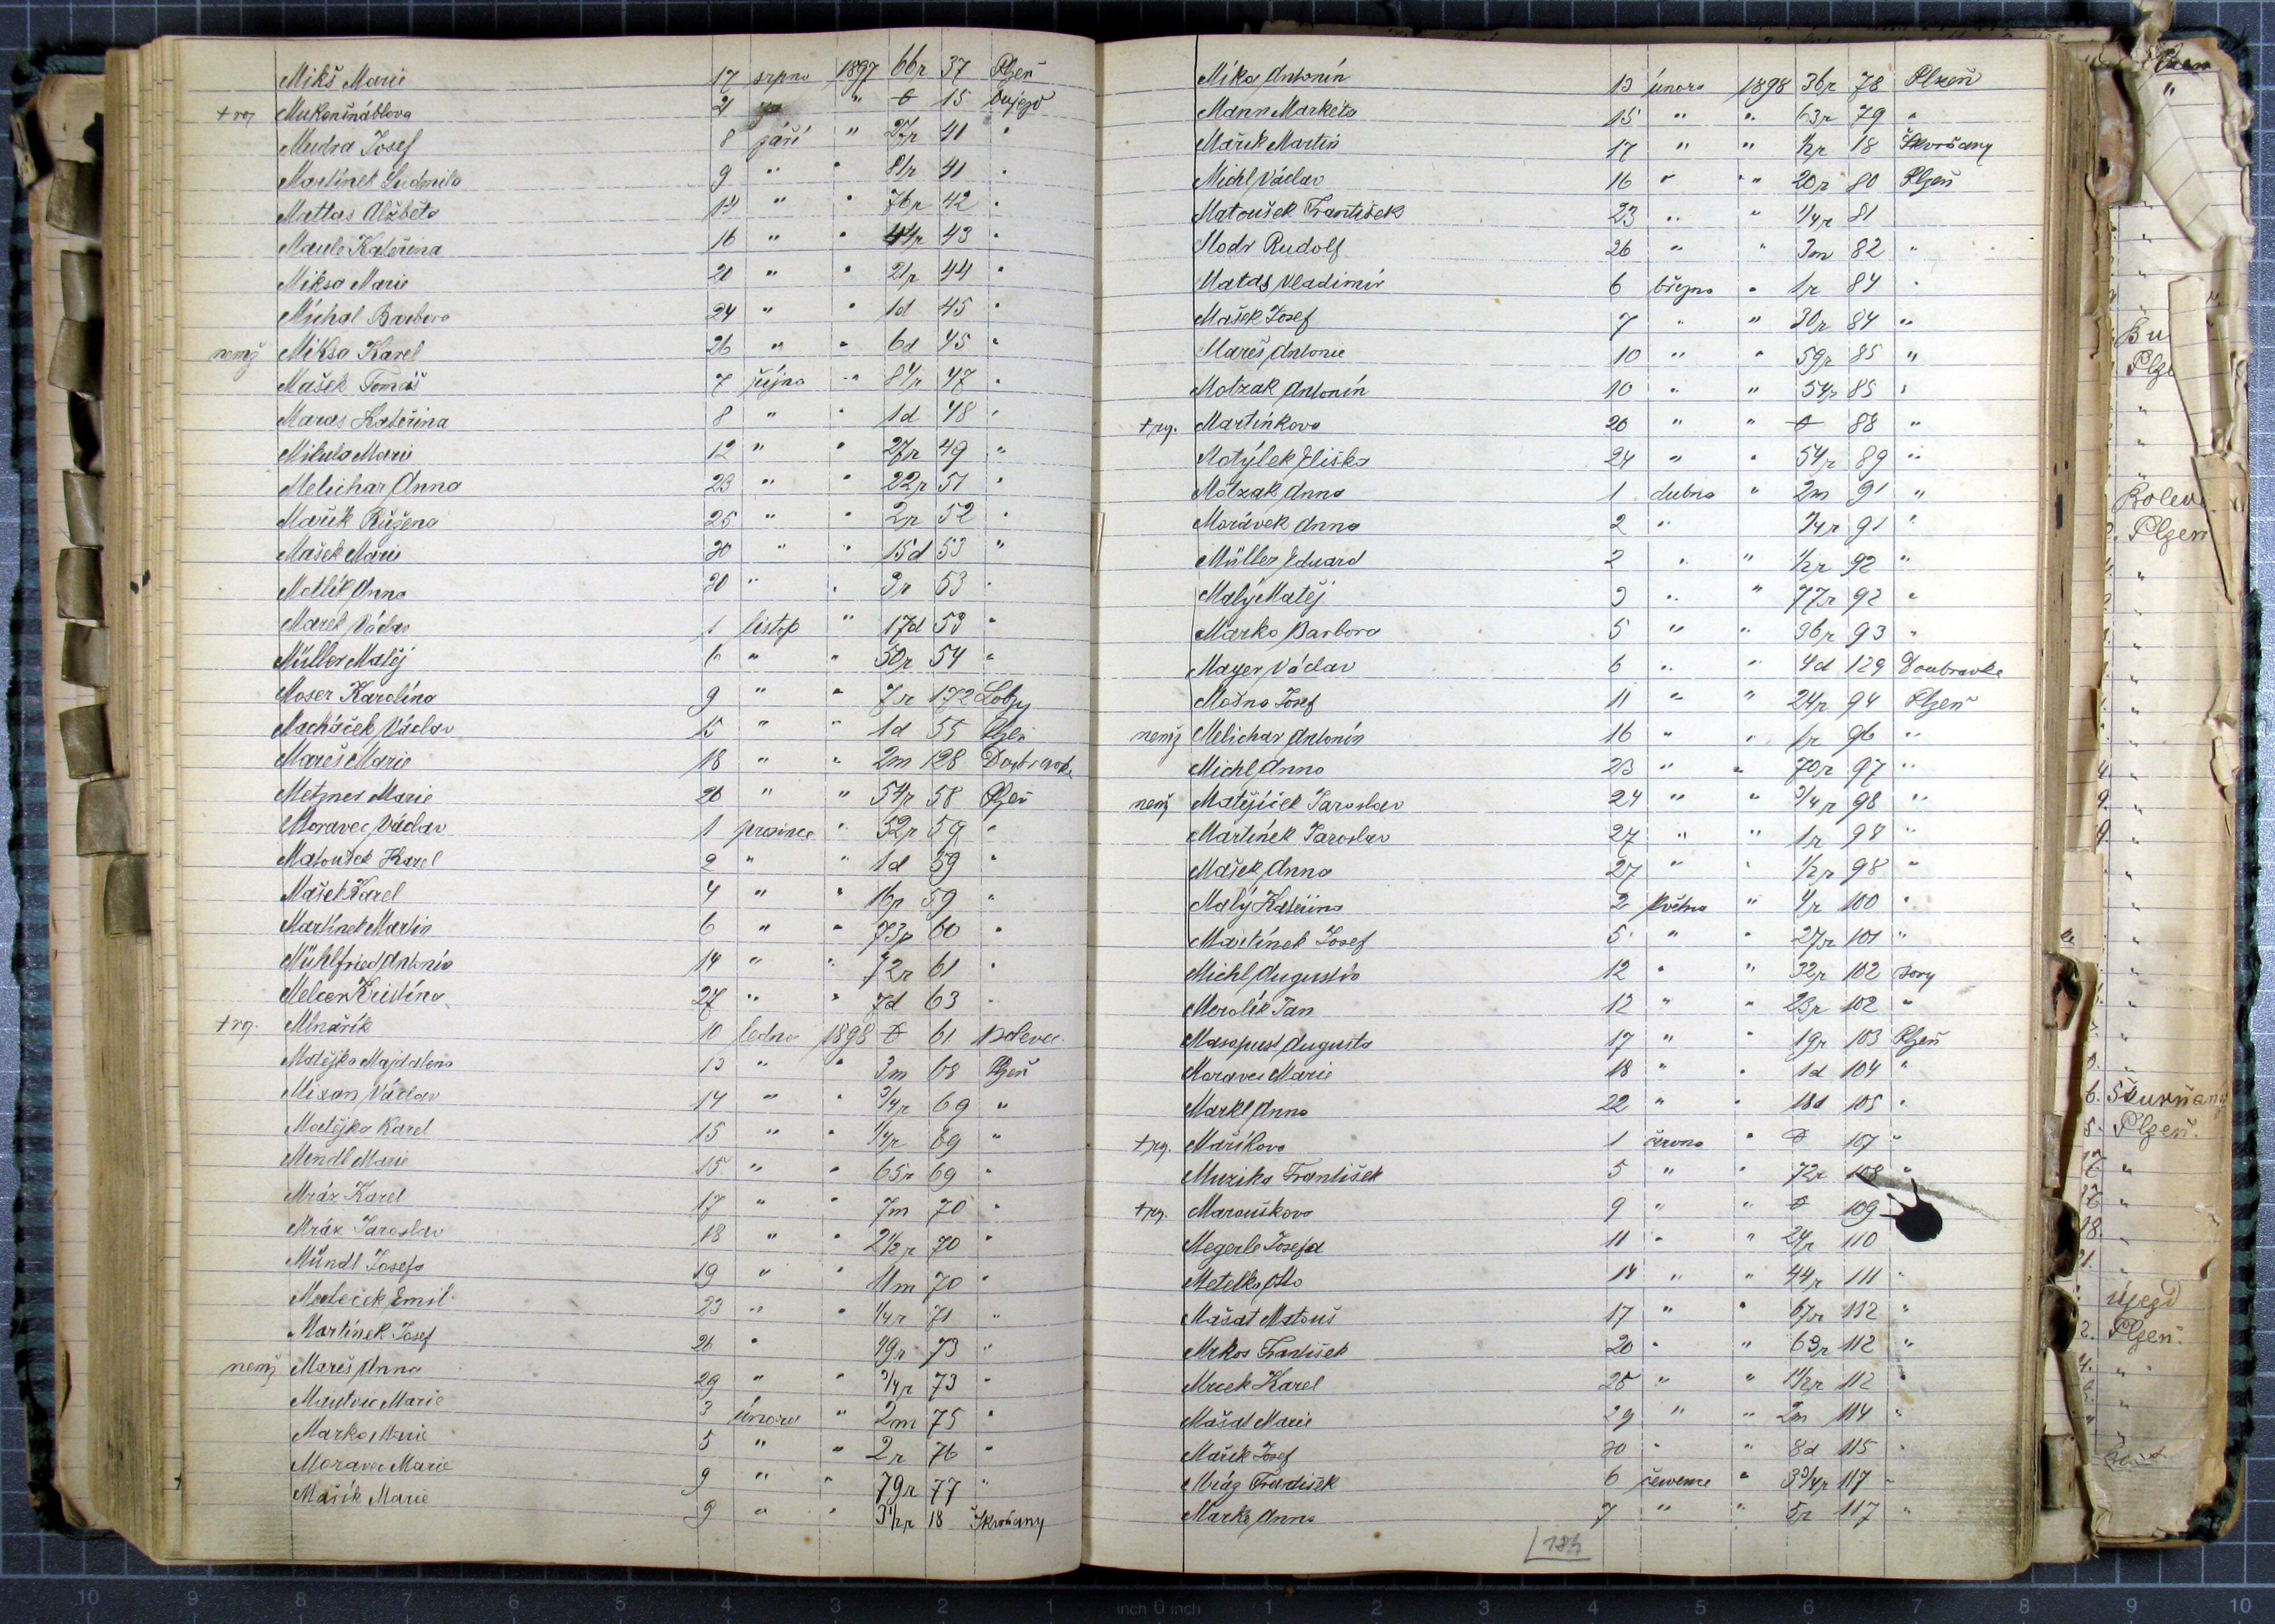 Mikš Marie 17 srpna 1897 66r 37 Plzeň
+ rg 21 " " 0 15 Oujezd
Mudra Josef 8 září " 27r 41 "
Martínek Ludmila 9 " " 81r 41 "
Mattas Alžběta 14 " " 76r 42 "
Maule Kateřina 16 " " 44r 43 "
Miksa Marie 20 " " 21r 44 "
Michal Barbora 24 " " 1d 45 "
nemž Miksa Karel 26 " " 6d 45 "
Mašek Tomáš 7 října " 84r 47 "
Maras Kateřina 8 " " 1d 48 "
Mikula Marie 12 " " 27r 49 "
Melichar Anna 23 " " 22r 51 "
Mařík Růžena 25 " " 2r 52 "
Mašek Marie 30 " " 15d 53 "
Motlík Anna 30 " " 3r 53 "
Marek Václav 1 listop " 17d 53 "
Müller Matěj 6 " " 50r 54 "
Moser Karolína 9 " " 7r 172 Lobzy
Macháček Václav 15 " " 1d 55 Plzeň
Mareš Marie 18 " " 2m 128 Doubravka
Metzner Marie 26 " " 54r 58 Plzeň
Moravec Václav 1 prosince " 52r 59 "
Matoušek Karel 2 " " 1d 59 "
Mašek Karel 4 " " 16r 59 "
Martínek Martin 6 " " 73r 60 "
Mühlfried Antonie 14 " " 72r 61 "
Melcer Kristína 27 " " 7d 63 "
+ rg. Mlnařík 10 ledna 1898 0 61 Bolevec
Matějka Majdalena 13 " " 3m 68 Plzeň
Mixan Václav 14 " " 3/4r 69 "
Matějka Karel 15 " " 1/4r 69 "
Mendl Marie 15 " " 65r 69 "
Mráz Karel 17 " " 7m 70 "
Mráz Jaroslav 18 " " 2 1/2r 70 "
Mündl Josefa 19 " " 11m 70 "
Maleček Emil 23 " " 1/4r 71 "
Martínek Josef 26 " 49r 73 "
nemž Mareš Anna 29 " " 3/4r 73 "
Marie 3 února " 2m 75 "
Marko Marie 5 " " 2r 76 "
Moravec Marie 9 " " 79r 77 "
Mařík Marie 9 " " 3 1/2r 18 Skvrňany
Míka Antonín 13 února 1898 36r 78 Plzeň
Mann Markéta 15 " " 63r 79 "
Mařík Martin 17 " " 1/2r 18 Skvrňany
Michl Václav 16 " " 20r 80 Plzeň
Matoušek František 23 " " 1/4r 81
Modr Rudolf 26 " " 3m 82 "
Matas Vladimír 6 března " 1r 84 "
Mašek Josef 7 " " 30r 84 "
Mareš Antonie 10 " " 59r 85 "
Motzak Antonín 10 " " 54r 85 "
+ rg. Martínkova 20 " " 0 88 "
Motýlek Eliška 24 " " 54r 89 "
Motzak Anna 1 dubna " 2m 91 "
Morávek Anna 2 " 3/4r 91 "
Müller Eduard 2 " " 1/2r 92 "
Malý Matěj 3 " " 77r 92 "
Marko Barbora 5 " " 36r 93 "
Mayer Václav 6 " " 4d 129 Doubravka
Mošna Josef 11 " " 24r 94 Plzeň
nemž Melichar Antonín 16 " " 1r 96 "
Michl Anna 23 " " 70r 97 "
nemž Matějíček Jaroslav 24 " " 3/4r 98 "
Martínek Jaroslav 27 " " 1r 98 "
Mašek Anna 27 " " 1/2r 98 "
Malý Kateřina 2 května " 4r 100 "
Martínek Josef 5 " " 27r 101 "
Michl Augustin 12 " " 32r 102 Bory
Merolík Jan 12 " " 23r 102 "
Masopust Augusta 17 " " 19r 103 Plzeň
Moravec Marie 18 " " 1d 104 "
Markl Anna 22 " " 18d 105 "
+ rg. Maříkova 1 června " 0 107 "
Muzika František 5 " " 72r 108 "
+ rg. Marouškova 9 " " 0 109
Megerle Josefa 11 " " 24r 110
Metelka Otto 14 " " 44r 111 "
Mašat Matouš 17 " " 67r 112 "
Mrkos František 20 " " 63r 112 "
Mucek Karel 25 " " 1 1/2r 112 "
Mašat Marie 29 " " 2m 114 "
Mařík Josef 30 " " 8d 115 "
Mráz František 6 července " 3 3/4r 117 "
Marko Anna 7 " " 5r 117 "
184
Bu
Plze
Bolev
2. Plzeň
6. Skvrňany
8. Plzeň.
18.
21.
Újezd
2. Plzeň.
10 9 8 7 6 5 4 3 2 1 inch 0 inch 1 2 3 4 5 6 7 8 9 10